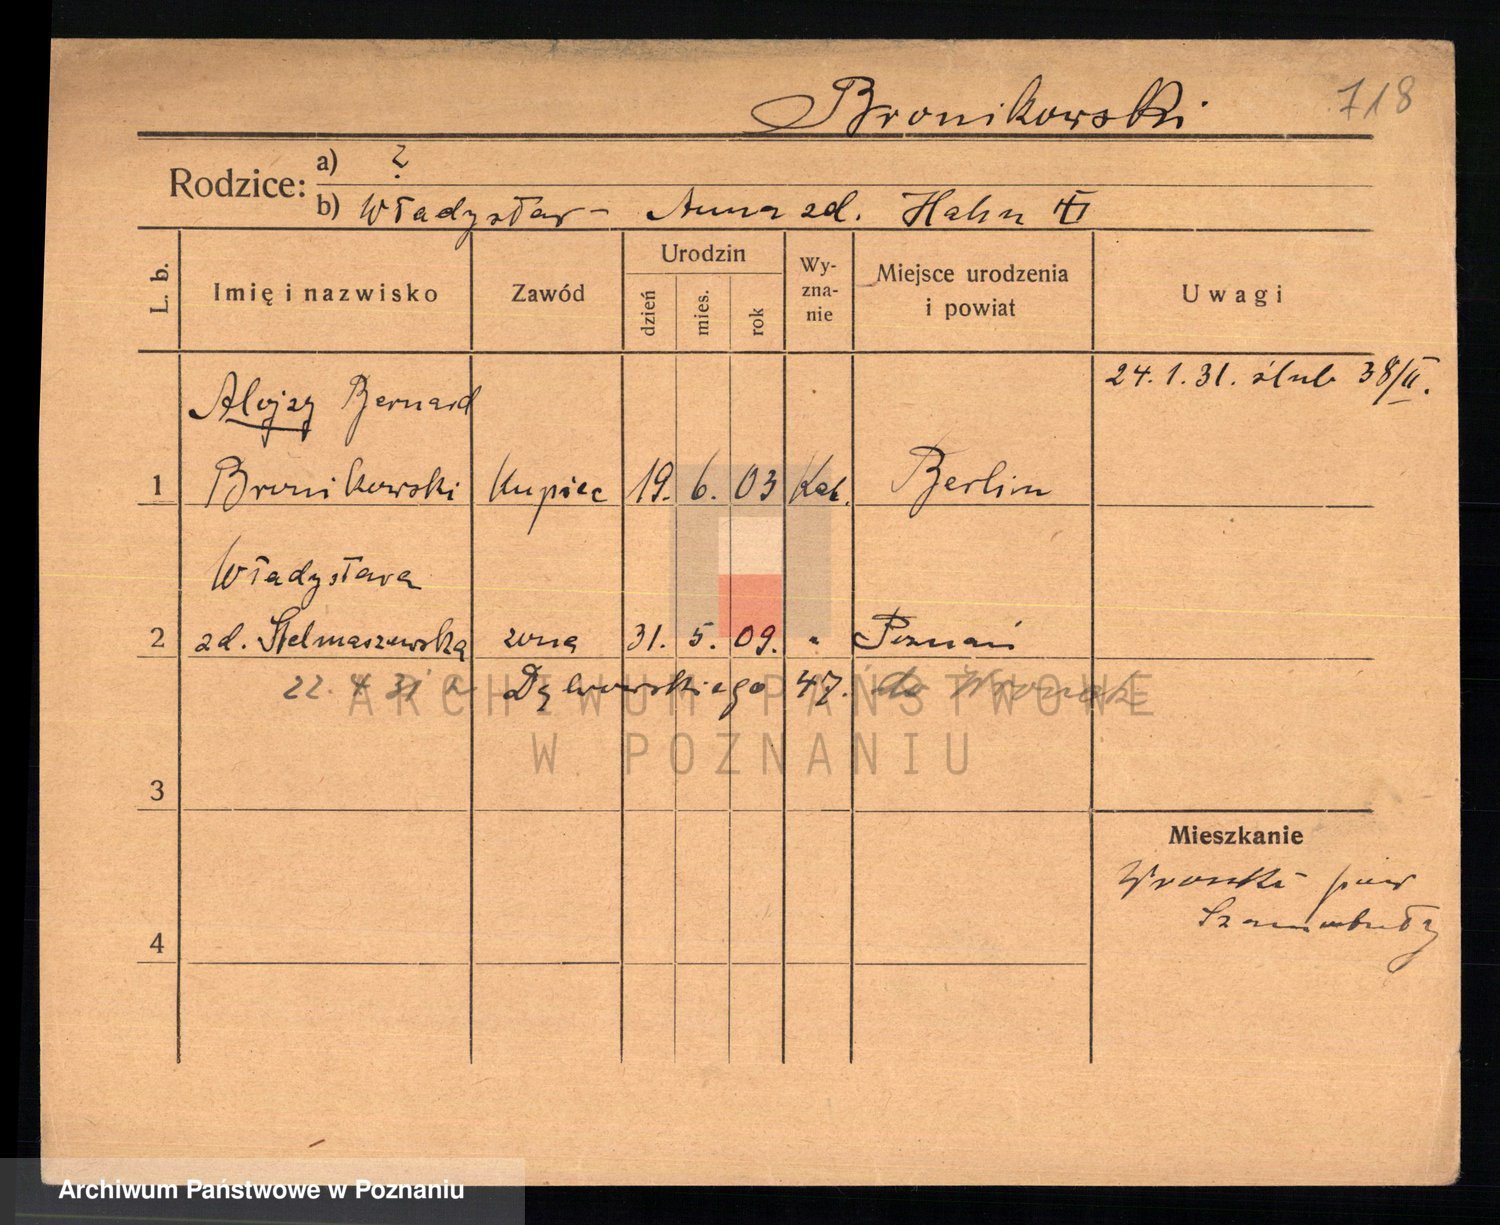 Bronikowski
718
Rodzice:
a) ?
b) Władysław - Anna zd. Hahn
L. b.
Imię i nazwisko
Zawód
Urodzin
dzień
mies.
rok
Wy-
zna-
nie
Miejsce urodzenia
i powiat
Uwagi
24. 1. 31. ślub 38/II.
Alojzy Bernard
1 Bronikowski Kupiec 19. 6. 03 Kat. Berlin
Władysława
2 zd. Stelmaszewska żona 31. 5. 09. " Poznań
22. 4 31 Dz 47. do Wronek
ARCHIWUM PAŃSTWOWE
W POZNANIU
3
Mieszkanie
Wronki pow
Szamotuły
4
Archiwum Państwowe w Poznaniu